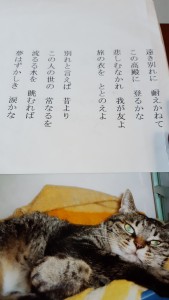 遠き別れに 耐えかねて
この高殿に 登るかな
悲しむなかれ 我が友よ
旅の衣を ととのえよ
別れと言えば 昔より
この人の世の 常なるを
流るる水を 眺むれば
夢はずかしき 涙かな